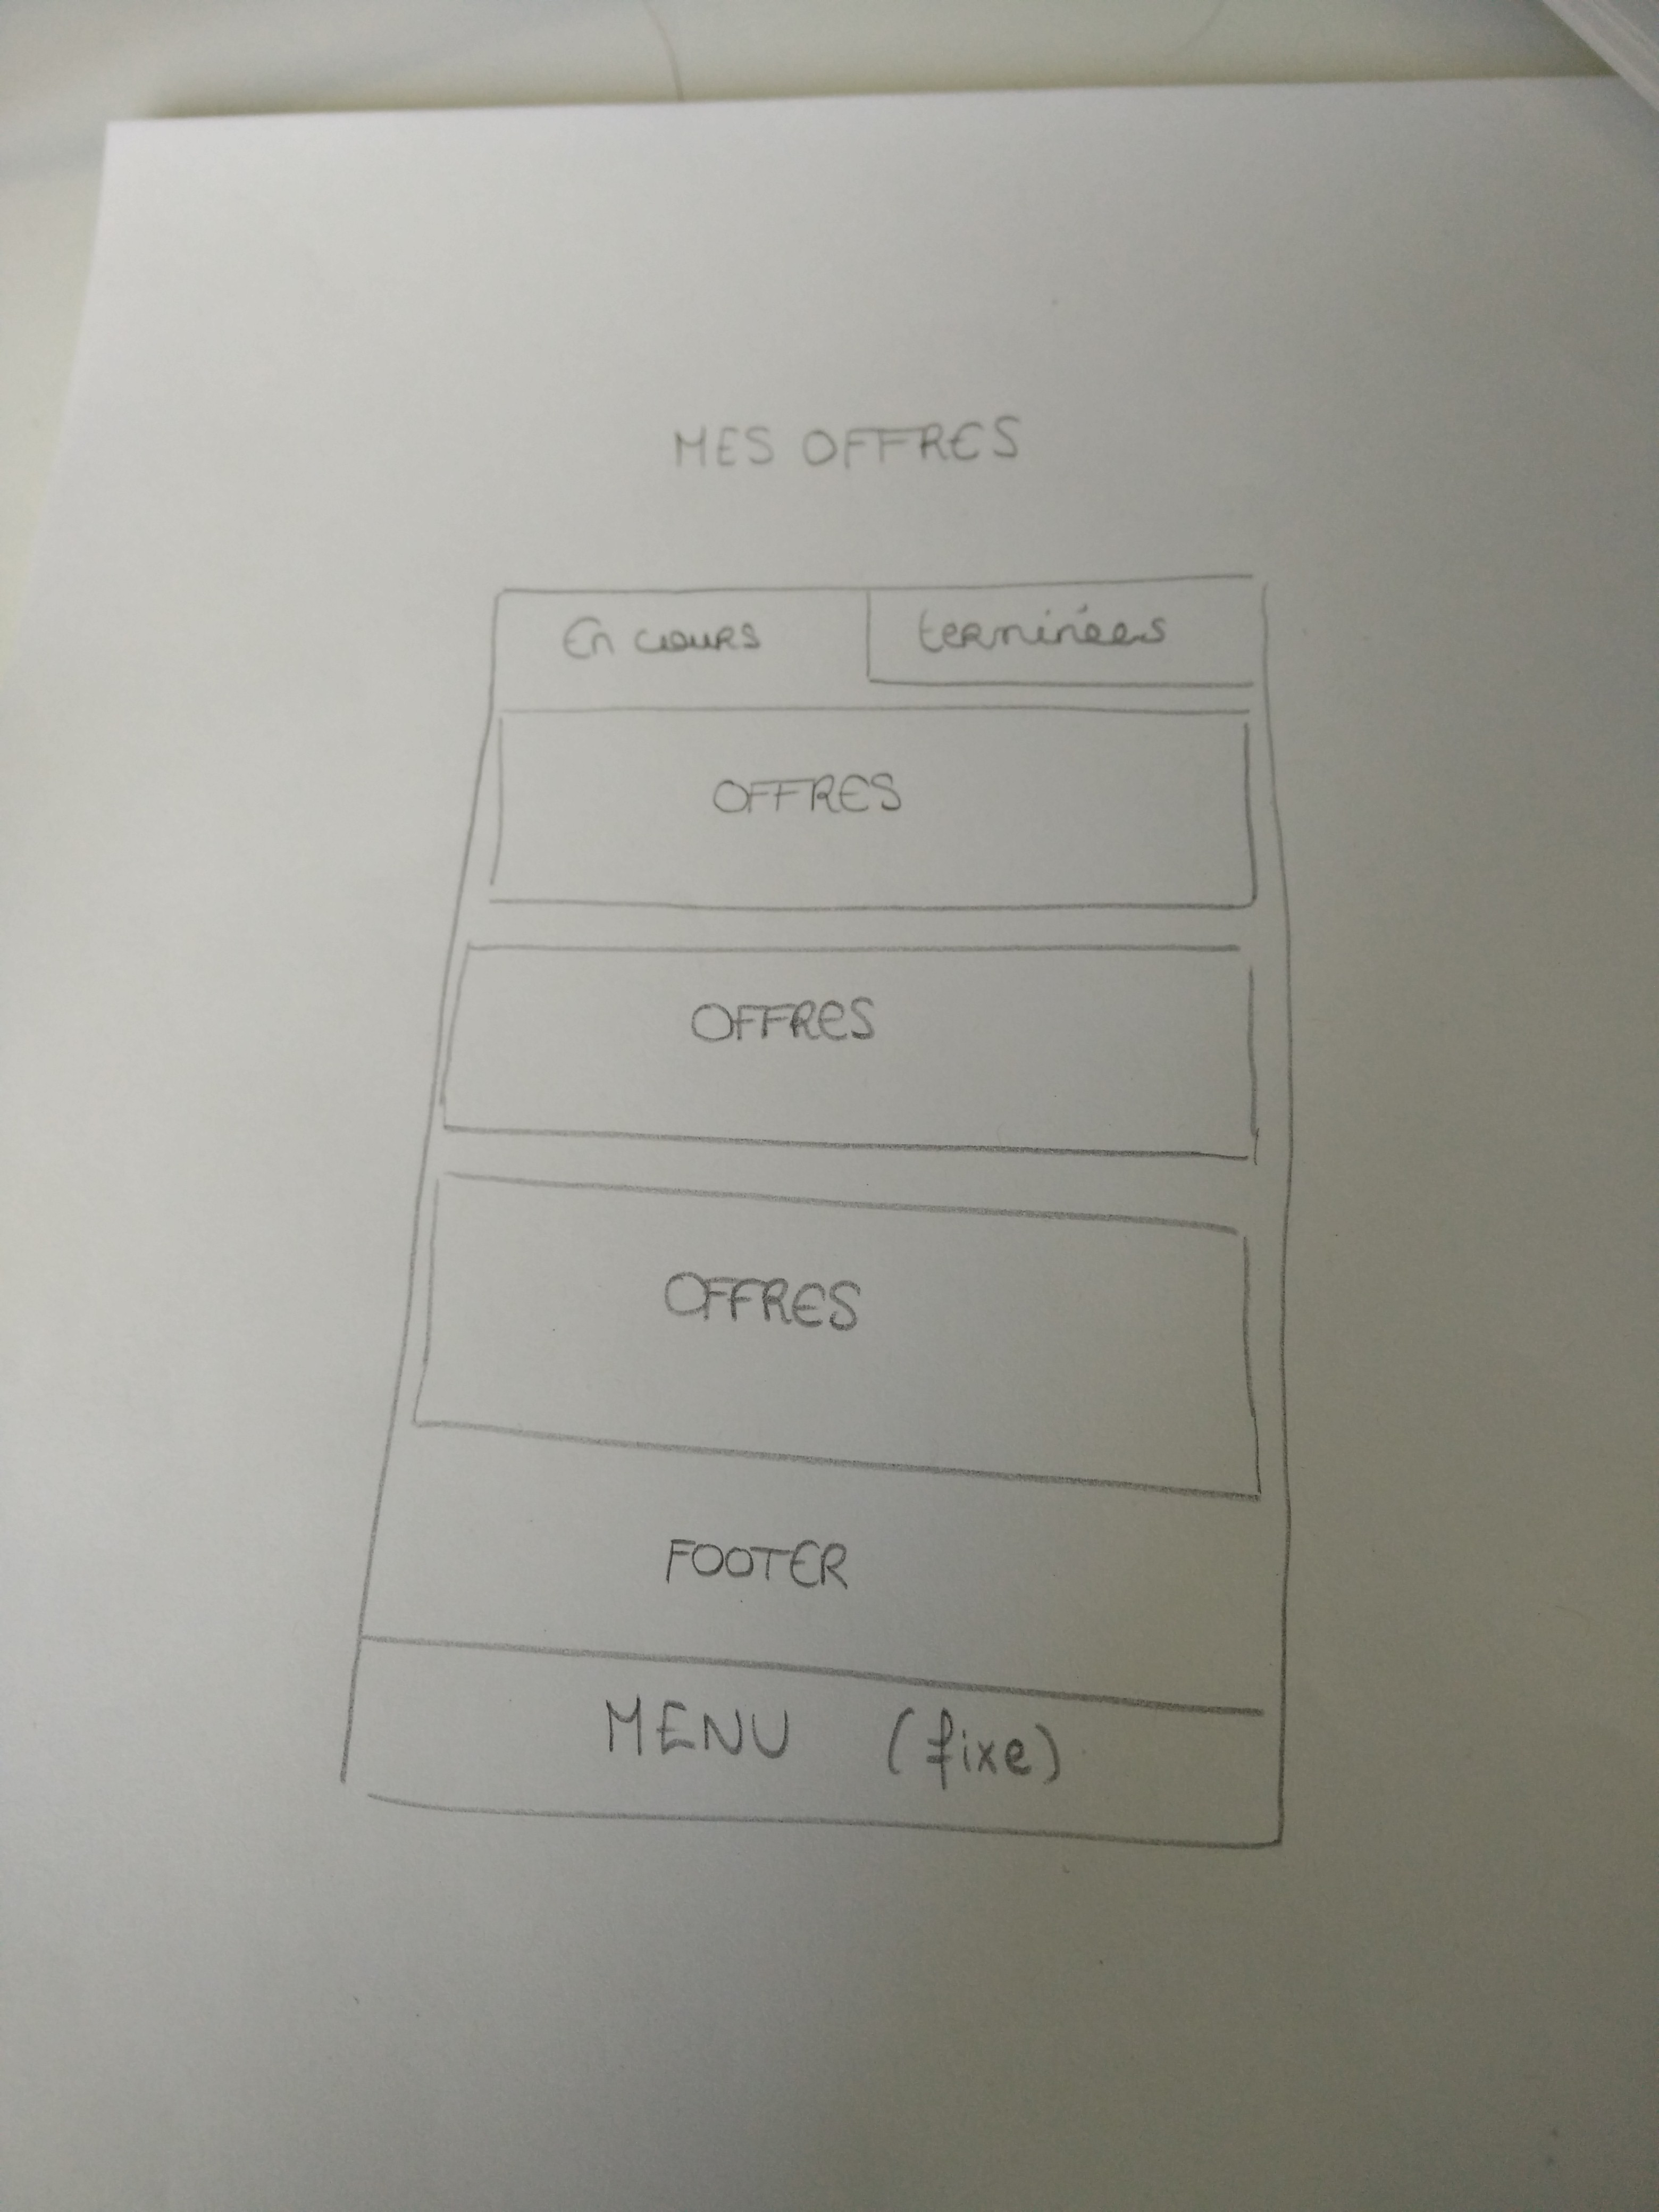 MES OFFRES
En cours terminées
OFFRES
OFFRES
OFFRES
FOOTER
MENU (fixe)